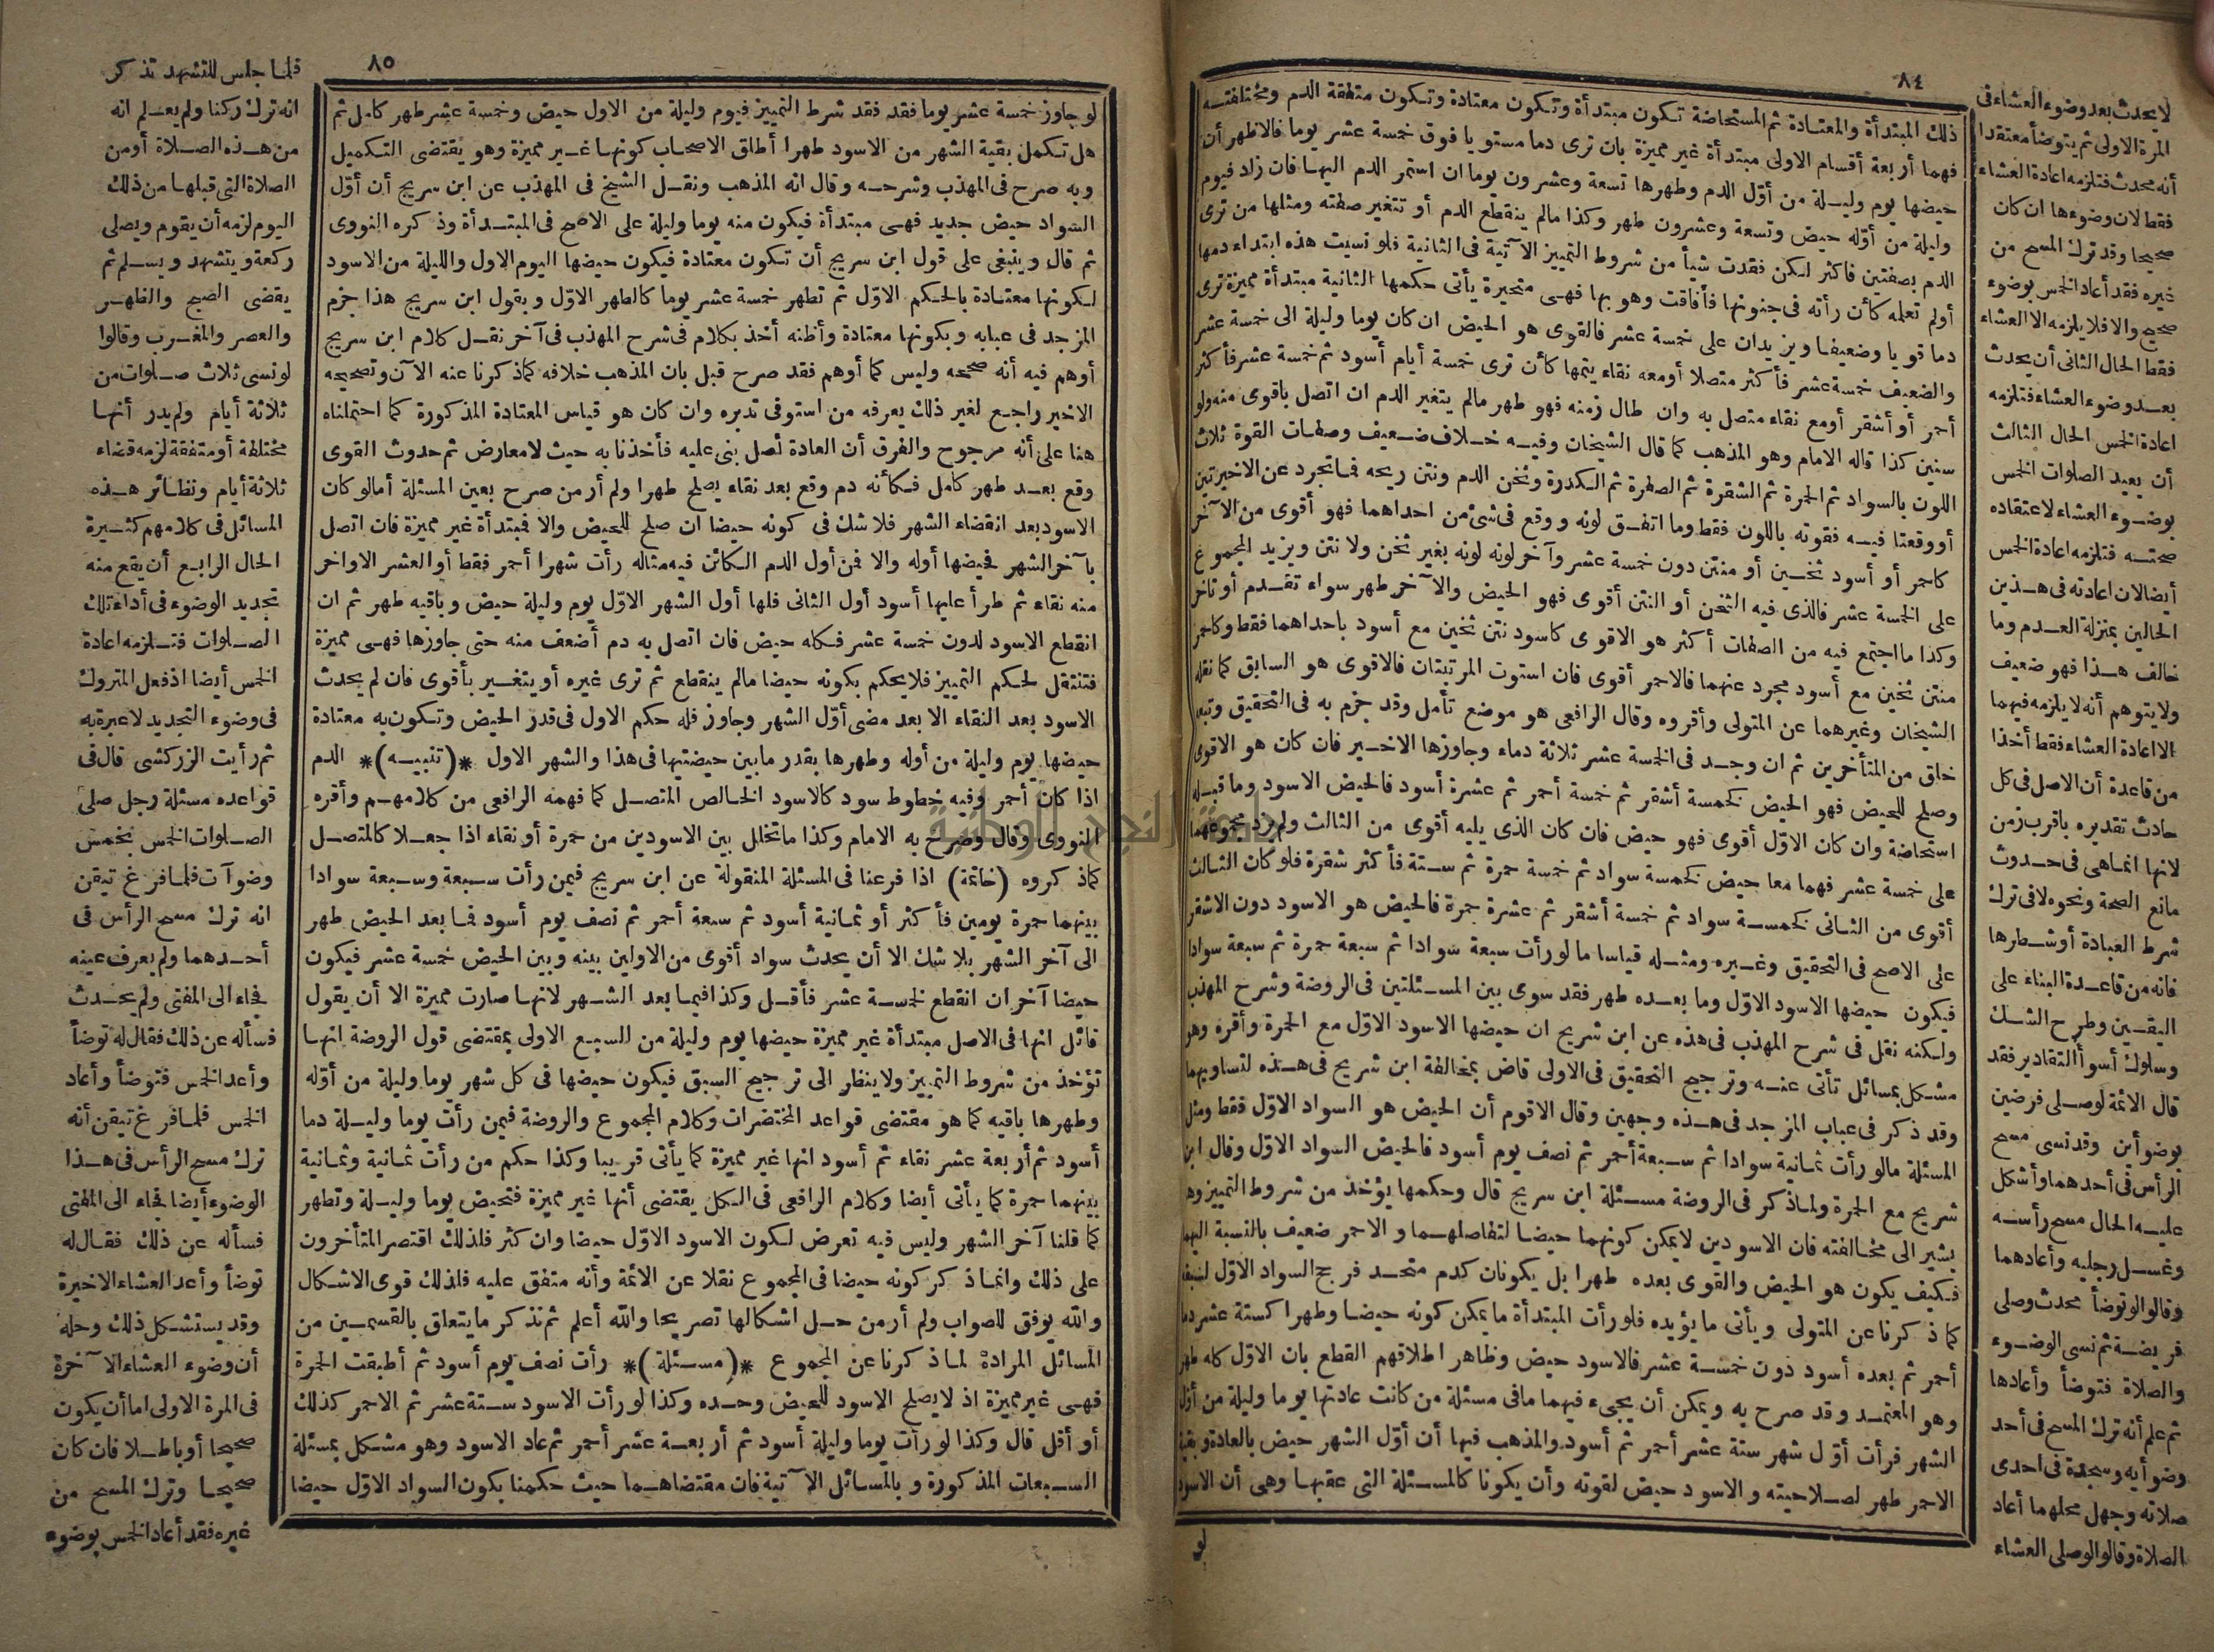 ٨٤
ذلك المبتدأة والمعتادة ثم المستحاضة تكون مبتدأة وتكون معتادة وتكون متفقة الدم ومختلفته
فهما أربعة أقسام الاولى مبتدأة غير مميزة بان ترى دما مستويا فوق خمسة عشر يوما فالاظهر أن
حيضها يوم وليلة من أوّل الدم وطهرها تسعة وعشرون يوما ان استمر الدم اليها فان زاد فيوم
وليلة من أوّله حيض وتسعة وعشرون طهر وكذا مالم ينقطع الدم أو تتغير صفته ومثلها من ترى
الدم بصفتين فاكثر لكن فقدت شيأ من شروط التمييز الآتية فى الثانية فلو نسيت هذه ابتداء دمها
أولم تعلمه كأن رأته فى جنونها فأفاقت وهو بها فهى متحيرة يأتى حكمها الثانية مبتدأة مميزة ترى
دما قويا وضعيفا ويزيدان على خمسة عشر فالقوى هو الحيض ان كان يوما وليلة الى خمسة عشر
والضعيف خمسة عشر فأكثر متصلا أومعه نقاء يتمها كأن ترى خمسة أيام أسود ثم خمسة عشر فأكثر
أحمر أو أشقر أومع نقاء متصل به وان طال زمنه فهو طهر مالم يتغير الدم ان اتصل باقوى منه ولو
سنين كذا قاله الامام وهو المذهب كما قال الشيخان وفيه خلاف ضعيف وصفات القوة ثلاث
اللون بالسواد ثم الحمرة ثم الشقرة ثم الصفرة ثم الكدرة وثخن الدم ونتن ريحه فما تجرد عن الاخيرتين
أو وقعتا فيه فقوته باللون فقط وما اتفق لونه ووقع فى شئ من احداهما فهو أقوى من الآخر
كاحمر أو أسود ثخين أو منتن دون خمسة عشر وآخر لونه لونه بغير ثخن ولا نتن ويزيد المجموع
على الخمسة عشر فالذى فيه الثخن أو النتن أقوى فهو الحيض والآخر طهر سواء تقدم أو تأخر
وكذا ما اجتمع فيه من الصفات أكثر هو الاقوى كاسود نتن ثخين مع أسود باحداهما فقط وكاحمر
منتن ثخين مع أسود مجرد عنهما فالاحمر أقوى فان استوت المرتبتان فالاقوى هو السابق كما نقله
الشيخان وغيرهما عن المتولى وأقروه وقال الرافعى هو موضع تأمل وقد جزم به فى التحقيق وتبعه
خلق من المتأخرين ثم ان وجد فى الخمسة عشر ثلاثة دماء وجاوزها الاخير فان كان هو الاقوى
وصلح للحيض فهو الحيض كخمسة أشقر ثم خمسة أحمر ثم عشرة أسود فالحيض الاسود وما قبله
استحاضة وان كان الاوّل أقوى فهو حيض فان كان الذى يليه أقوى من الثالث ولم يزد مجموعهما
على خمسة عشر فهما معا حيض كخمسة سواد ثم خمسة حمرة ثم ستة فأكثر شقرة فلو كان الثالث
أقوى من الثانى كخمسة سواد ثم خمسة أشقر ثم عشرة حمرة فالحيض هو الاسود دون الاشقر
على الاصح فى التحقيق وغيره ومثله قياسا مالو رأت سبعة سوادا ثم سبعة حمرة ثم سبعة سوادا
فيكون حيضها الاسود الاوّل وما بعده طهر فقد سوى بين المسئلتين فى الروضة وشرح المهذب
ولكنه نقل فى شرح المهذب فى هذه عن ابن شريح ان حيضها الاسود الاوّل مع الحمرة وأقره وهو
مشكل بمسائل تأتى عنه وترجيح التحقيق فى الاولى قاض بمخالفة ابن شريح فى هذه لتساويهما
وقد ذكر فى عباب المزجد فى هذه وجهين وقال الاقوم أن الحيض هو السواد الاوّل فقط ومثل
المسئلة مالو رأت ثمانية سوادا ثم سبعة أحمر ثم نصف يوم أسود فالحيض السواد الاوّل وقال ابن
شريح مع الحمرة ولماذكر فى الروضة مسئلة ابن سريج قال وحكمها يؤخذ من شروط التمييز وهو
يشير الى مخالفته فان الاسودين لا يمكن كونهما حيضا لتفاصلهما والاحمر ضعيف بالنسبة اليهما
فكيف يكون هو الحيض والقوى بعده طهرا بل يكونان كدم متحد فرجح السواد الاوّل لسبقه
كما ذكرنا عن المتولى ويأتى ما يؤيده فلو رأت المبتدأة ما يمكن كونه حيضا وطهرا كستة عشر دما
أحمر ثم بعده أسود دون خمسة عشر فالاسود حيض وظاهر اطلاقهم القطع بان الاوّل كله طهر
وهو المعتمد وقد صرح به ويمكن أن يجىء فيهما مافى مسئلة من كانت عادتها يوما وليلة من أوّل
الشهر فرأت أوّل شهر ستة عشر أحمر ثم أسود والمذهب فيها أن أوّل الشهر حيض بالعادة وبقية
الاحمر طهر لصلاحيته والاسود حيض لقوته وأن يكونا كالمسئلة التى عقبها وهى أن الاسود
لو
لايحدث بعد وضوء العشاء فى
المرة الاولى ثم يتوضأ معتقدا
أنه محدث فتلزمه اعادة العشاء
فقط لان وضوءها ان كان
صحيحا وقد ترك المسح من
غيره فقد أعاد الخمس بوضوء
صحيح والا فلا يلزمه الا العشاء
فقط الحال الثانى أن يحدث
بعد وضوء العشاء فتلزمه
اعادة الخمس الحال الثالث
أن يعيد الصلوات الخمس
بوضوء العشاء لاعتقاده
صحته فتلزمه اعادة الخمس
أيضا لان اعادته فى هذين
الحالين بمنزلة العدم وما
خالف هذا فهو ضعيف
ولا يتوهم أنه لا يلزمه فيهما
الا اعادة العشاء فقط أخذا
من قاعدة أن الاصل فى كل
حادث تقديره باقرب زمن
لانها انماهى فى حدوث
مانع الصحة ونحوه لا فى ترك
شرط العبادة أو شطرها
فانه من قاعدة البناء على
اليقين وطرح الشك
وسلوك أسوأ التقادير فقد
قال الائمة لو صلى فرضين
بوضوأين وقد نسى مسح
الرأس فى أحدهما وأشكل
عليه الحال مسح رأسه
وغسل رجليه وأعادهما
وقالوا لو توضأ محدث وصلى
فريضة ثم نسى الوضوء
والصلاة فتوضأ وأعادها
ثم علم أنه ترك المسح فى أحد
وضوأيه وسجدة فى احدى
صلاته وجهل محلهما أعاد
الصلاة وقالوا لو صلى العشاء
٨٥
لو جاوز خمسة عشر يوما فقد فقد شرط التمييز فيوم وليلة من الاول حيض وخمسة عشر طهر كامل ثم
هل تكمل بقية الشهر من الاسود طهرا أطلق الاصحاب كونها غير مميزة وهو يقتضى التكميل
وبه صرح فى المهذب وشرحه وقال انه المذهب ونقل الشيخ فى المهذب عن ابن سريج أن أوّل
السواد حيض جديد فهى مبتدأة فيكون منه يوما وليلة على الاصح فى المبتدأة وذكره النووى
ثم قال وينبغى على قول ابن سريج أن تكون معتادة فيكون حيضها اليوم الاول والليلة من الاسود
لكونها معتادة بالحكم الاوّل ثم تطهر خمسة عشر يوما كالطهر الاوّل وبقول ابن سريج هذا جزم
المزجد فى عبابه وبكونها معتادة وأظنه أخذ بكلام فى شرح المهذب فى آخر نقل كلام ابن سريج
أوهم فيه أنه صححه وليس كما أوهم فقد صرح قبل بان المذهب خلافه كماذكرنا عنه الآن وتصحيحه
الاخير راجع لغير ذلك يعرفه من استوفى تدبره وان كان هو قياس المعتادة المذكورة كما احتملناه
هنا على أنه مرجوح والفرق أن العادة أصل بنى عليه فأخذنا به حيث لامعارض ثم حدوث القوى
وقع بعد طهر كامل فكأنه دم وقع بعد نقاء يصلح طهرا ولم أر من صرح بعين المسئلة أمالو كان
الاسود بعد انقضاء الشهر فلا شك فى كونه حيضا ان صلح للحيض والا فمبتدأة غير مميزة فان اتصل
بآخر الشهر فحيضها أوله والا فمن أول الدم الكائن فيه مثاله رأت شهرا أحمر فقط أو العشر الاواخر
منه نقاء ثم طرأ عليها أسود أول الثانى فلها أول الشهر الاوّل يوم وليلة حيض وباقيه طهر ثم ان
انقطع الاسود لدون خمسة عشر فكله حيض فان اتصل به دم أضعف منه حتى جاوزها فهى مميزة
فتنتقل لحكم التمييز فلايحكم بكونه حيضا مالم ينقطع ثم ترى غيره أو يتغير بأقوى فان لم يحدث
الاسود بعد النقاء الا بعد مضى أوّل الشهر وجاوز فله حكم الاول فى قدر الحيض وتكون به معتادة
حيضها يوم وليلة من أوله وطهرها بقدر مابين حيضتيها فى هذا والشهر الاول *(تنبيه)* الدم
اذا كان أحمر وفيه خطوط سود كالاسود الخالص المتصل كما فهمه الرافعى من كلامهم وأقره
النووى وقال وصرح به الامام وكذا ماتخلل بين الاسودين من حمرة أو نقاء اذا جعلا كالمتصل
كماذكروه (خاتمة) اذا فرعنا فى المسئلة المنقولة عن ابن سريج فيمن رأت سبعة وسبعة سوادا
بينهما حمرة يومين فأكثر أو ثمانية أسود ثم سبعة أحمر ثم نصف يوم أسود فما بعد الحيض طهر
الى آخر الشهر بلا شك الا أن يحدث سواد أقوى من الاولين بينه وبين الحيض خمسة عشر فيكون
حيضا آخر ان انقطع لخمسة عشر فأقل وكذا فيما بعد الشهر لانها صارت مميزة الا أن يقول
قائل انها فى الاصل مبتدأة غير مميزة حيضها يوم وليلة من السبع الاولى بمقتضى قول الروضة انها
تؤخذ من شروط التمييز ولا ينظر الى ترجيح السبق فيكون حيضها فى كل شهر يوما وليلة من أوّله
وطهرها باقيه كما هو مقتضى قواعد المختصرات وكلام المجموع والروضة فيمن رأت يوما وليلة دما
أسود ثم أربعة عشر نقاء ثم أسود انها غير مميزة كما يأتى قريبا وكذا حكم من رأت ثمانية وثمانية
بينهما حمرة كما يأتى أيضا وكلام الرافعى فى الكل يقتضى أنها غير مميزة فتحيض يوما وليلة وتطهر
كما قلنا آخر الشهر وليس فيه تعرض لكون الاسود الاوّل حيضا وان كثر فلذلك اقتصر المتأخرون
على ذلك وانما ذكر كونه حيضا فى المجموع نقلا عن الائمة وأنه متفق عليه فلذلك قوى الاشكال
والله يوفق للصواب ولم أر من حل اشكالها تصريحا والله أعلم ثم نذكر ما يتعلق بالقسمين من
المسائل المرادة لماذكرنا عن المجموع *(مسئلة)* رأت نصف يوم أسود ثم أطبقت الحمرة
فهى غير مميزة اذ لا يصلح الاسود للحيض وحده وكذا لو رأت الاسود ستة عشر ثم الاحمر كذلك
أو أقل قال وكذا لو رأت يوما وليلة أسود ثم أربعة عشر أحمر ثم عاد الاسود وهو مشكل بمسئلة
السبعات المذكورة وبالمسائل الآتية فان مقتضاهما حيث حكمنا بكون السواد الاوّل حيضا
فلما جلس للتشهد تذكر
انه ترك ركنا ولم يعلم انه
من هذه الصلاة أو من
الصلاة التى قبلها من ذلك
اليوم لزمه أن يقوم ويصلى
ركعة ويتشهد ويسلم ثم
يقضى الصبح والظهر
والعصر والمغرب وقالوا
لو نسى ثلاث صلوات من
ثلاثة أيام ولم يدر أنها
مختلفة أو متفقة لزمه قضاء
ثلاثة أيام ونظائر هذه
المسائل فى كلامهم كثيرة
الحال الرابع أن يقع منه
تجديد الوضوء فى أداء تلك
الصلوات فتلزمه اعادة
الخمس أيضا اذ فعل المتروك
فى وضوء التجديد لا عبرة به
ثم رأيت الزركشى قال فى
قواعده مسئلة رجل صلى
الصلوات الخمس بخمس
وضوآت فلما فرغ تيقن
انه ترك مسح الرأس فى
أحدهما ولم يعرف عينه
فجاء الى المفتى ولم يحدث
فسأله عن ذلك فقال له توضأ
وأعد الخمس فتوضأ وأعاد
الخمس فلما فرغ تيقن أنه
ترك مسح الرأس فى هذا
الوضوء أيضا فجاء الى المفتى
فسأله عن ذلك فقال له
توضأ وأعد العشاء الاخيرة
وقد يستشكل ذلك وحله
أن وضوء العشاء الآخرة
فى المرة الاولى اما أن يكون
صحيحا أو باطلا فان كان
صحيحا وترك المسح من
غيره فقد أعاد الخمس بوضوء